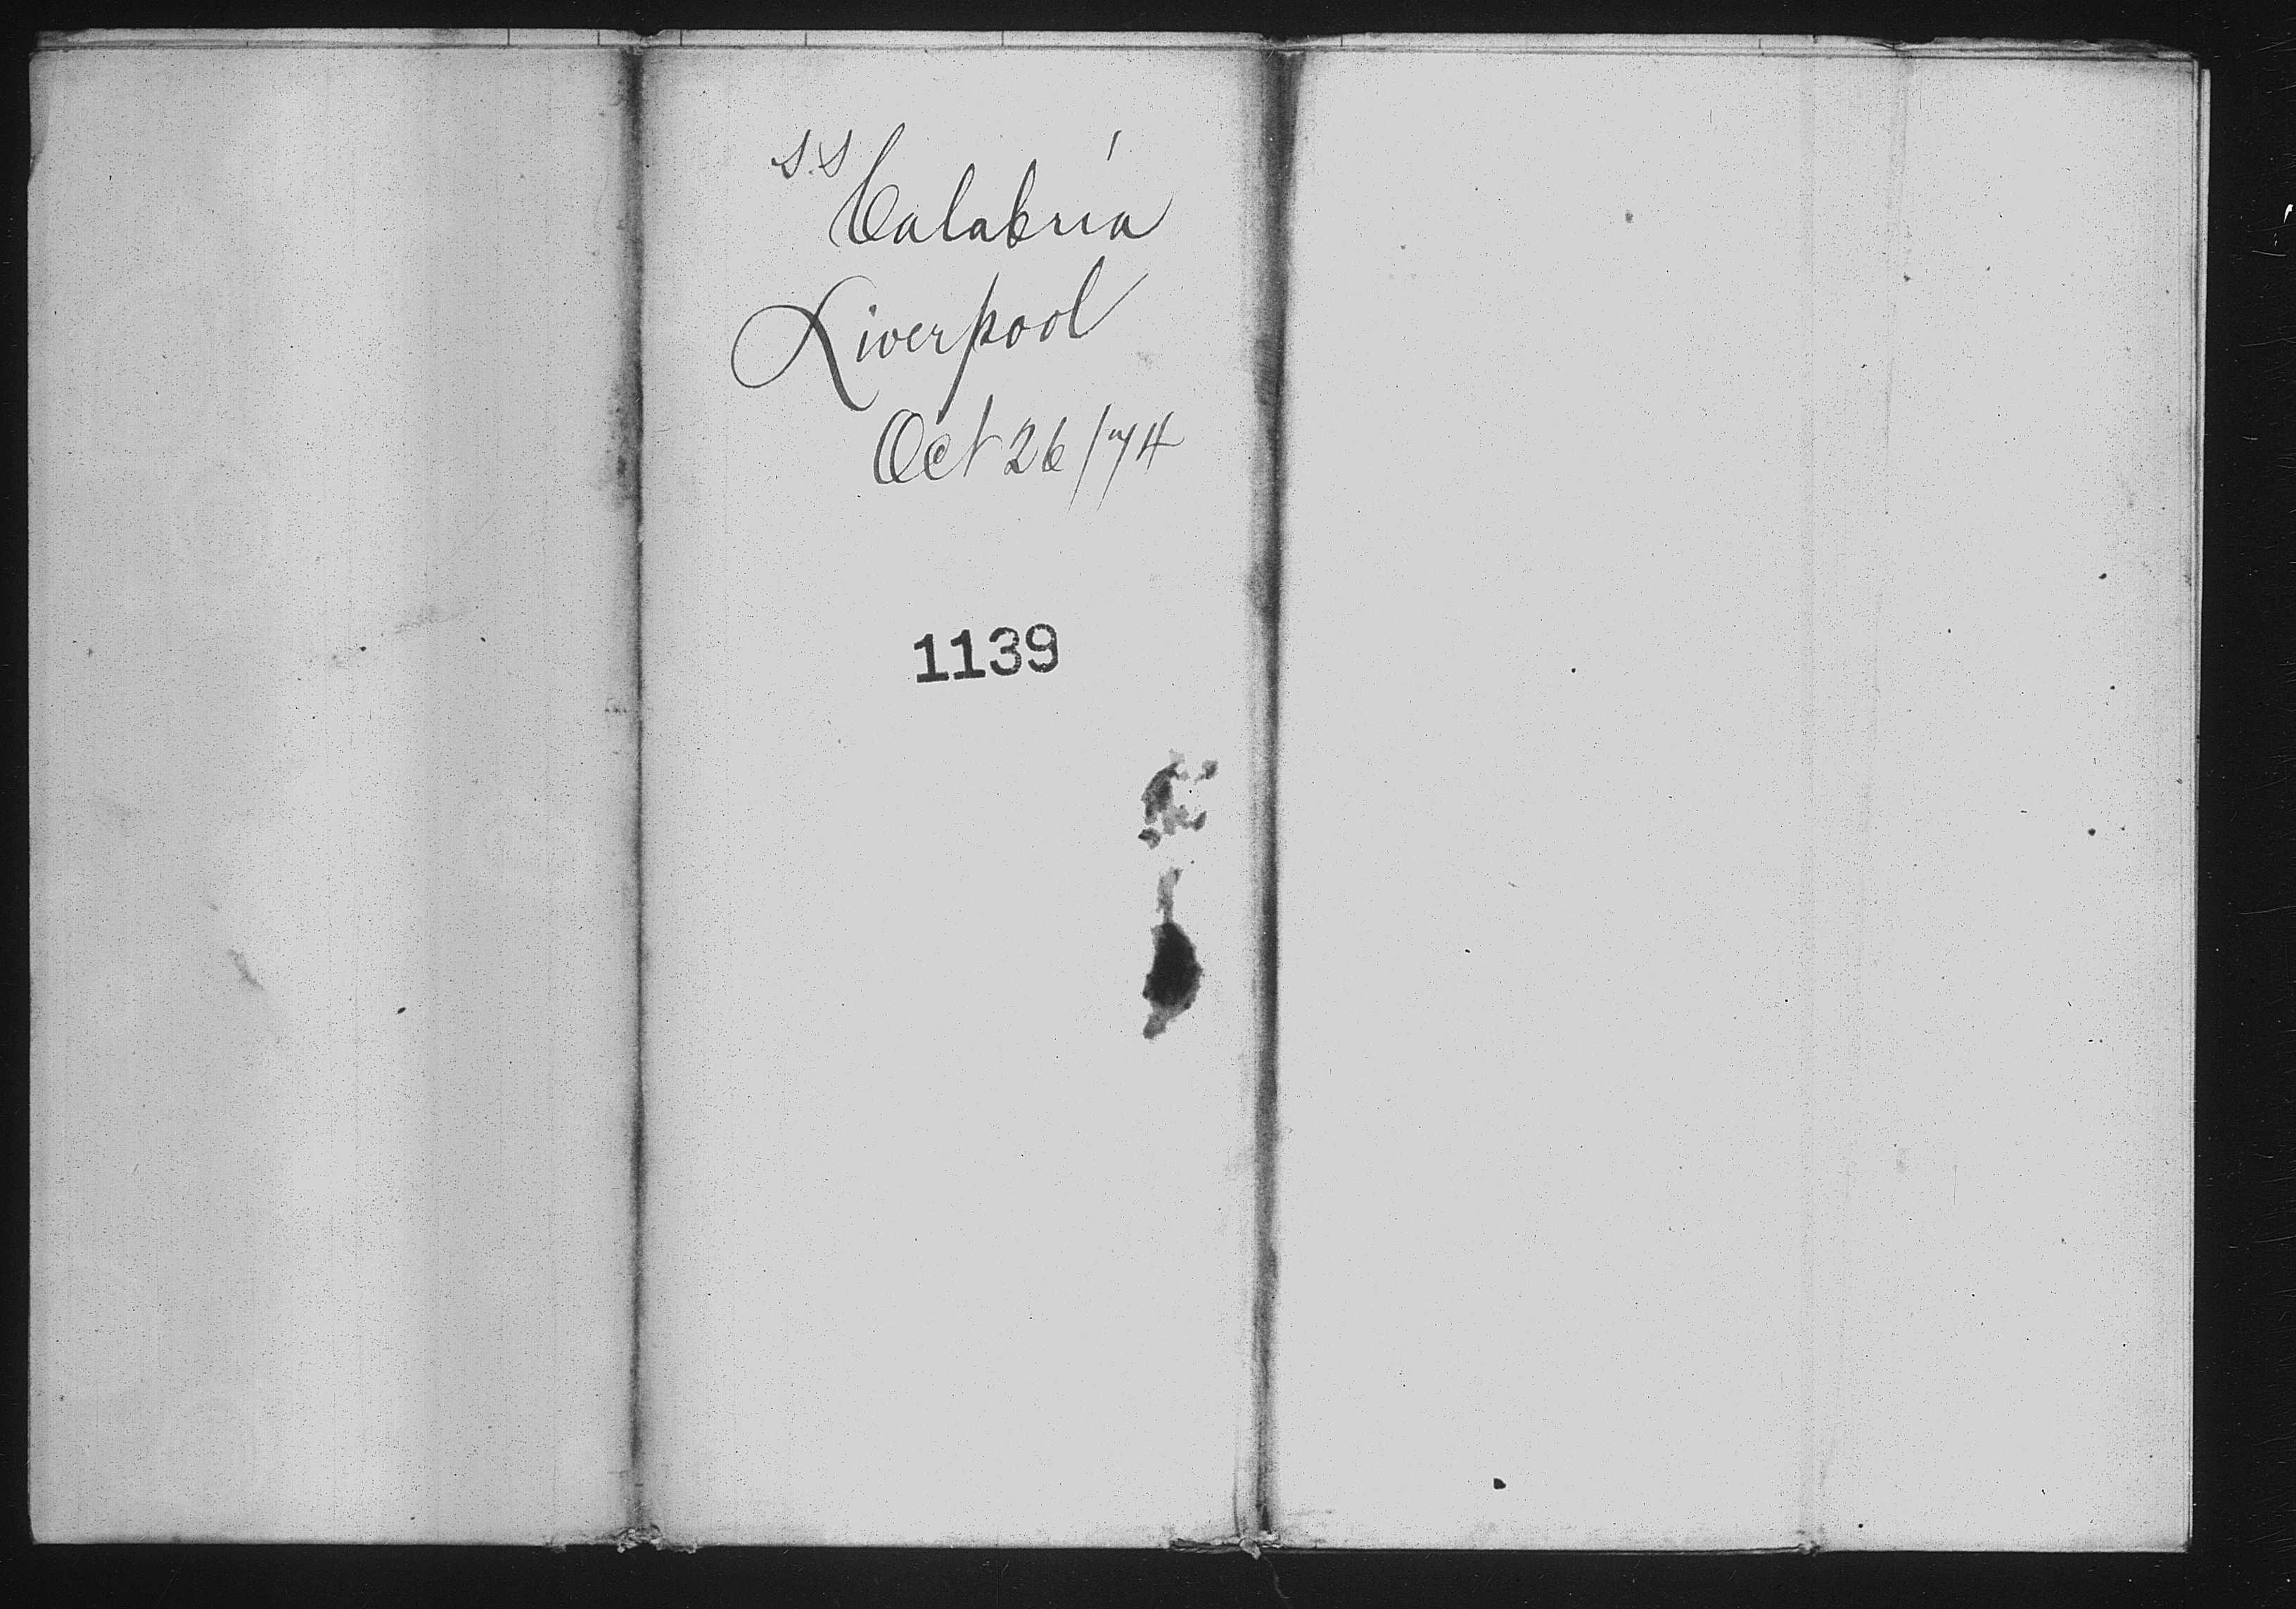 S.S
Calabria
Liverpool
Oct 26/74
1139